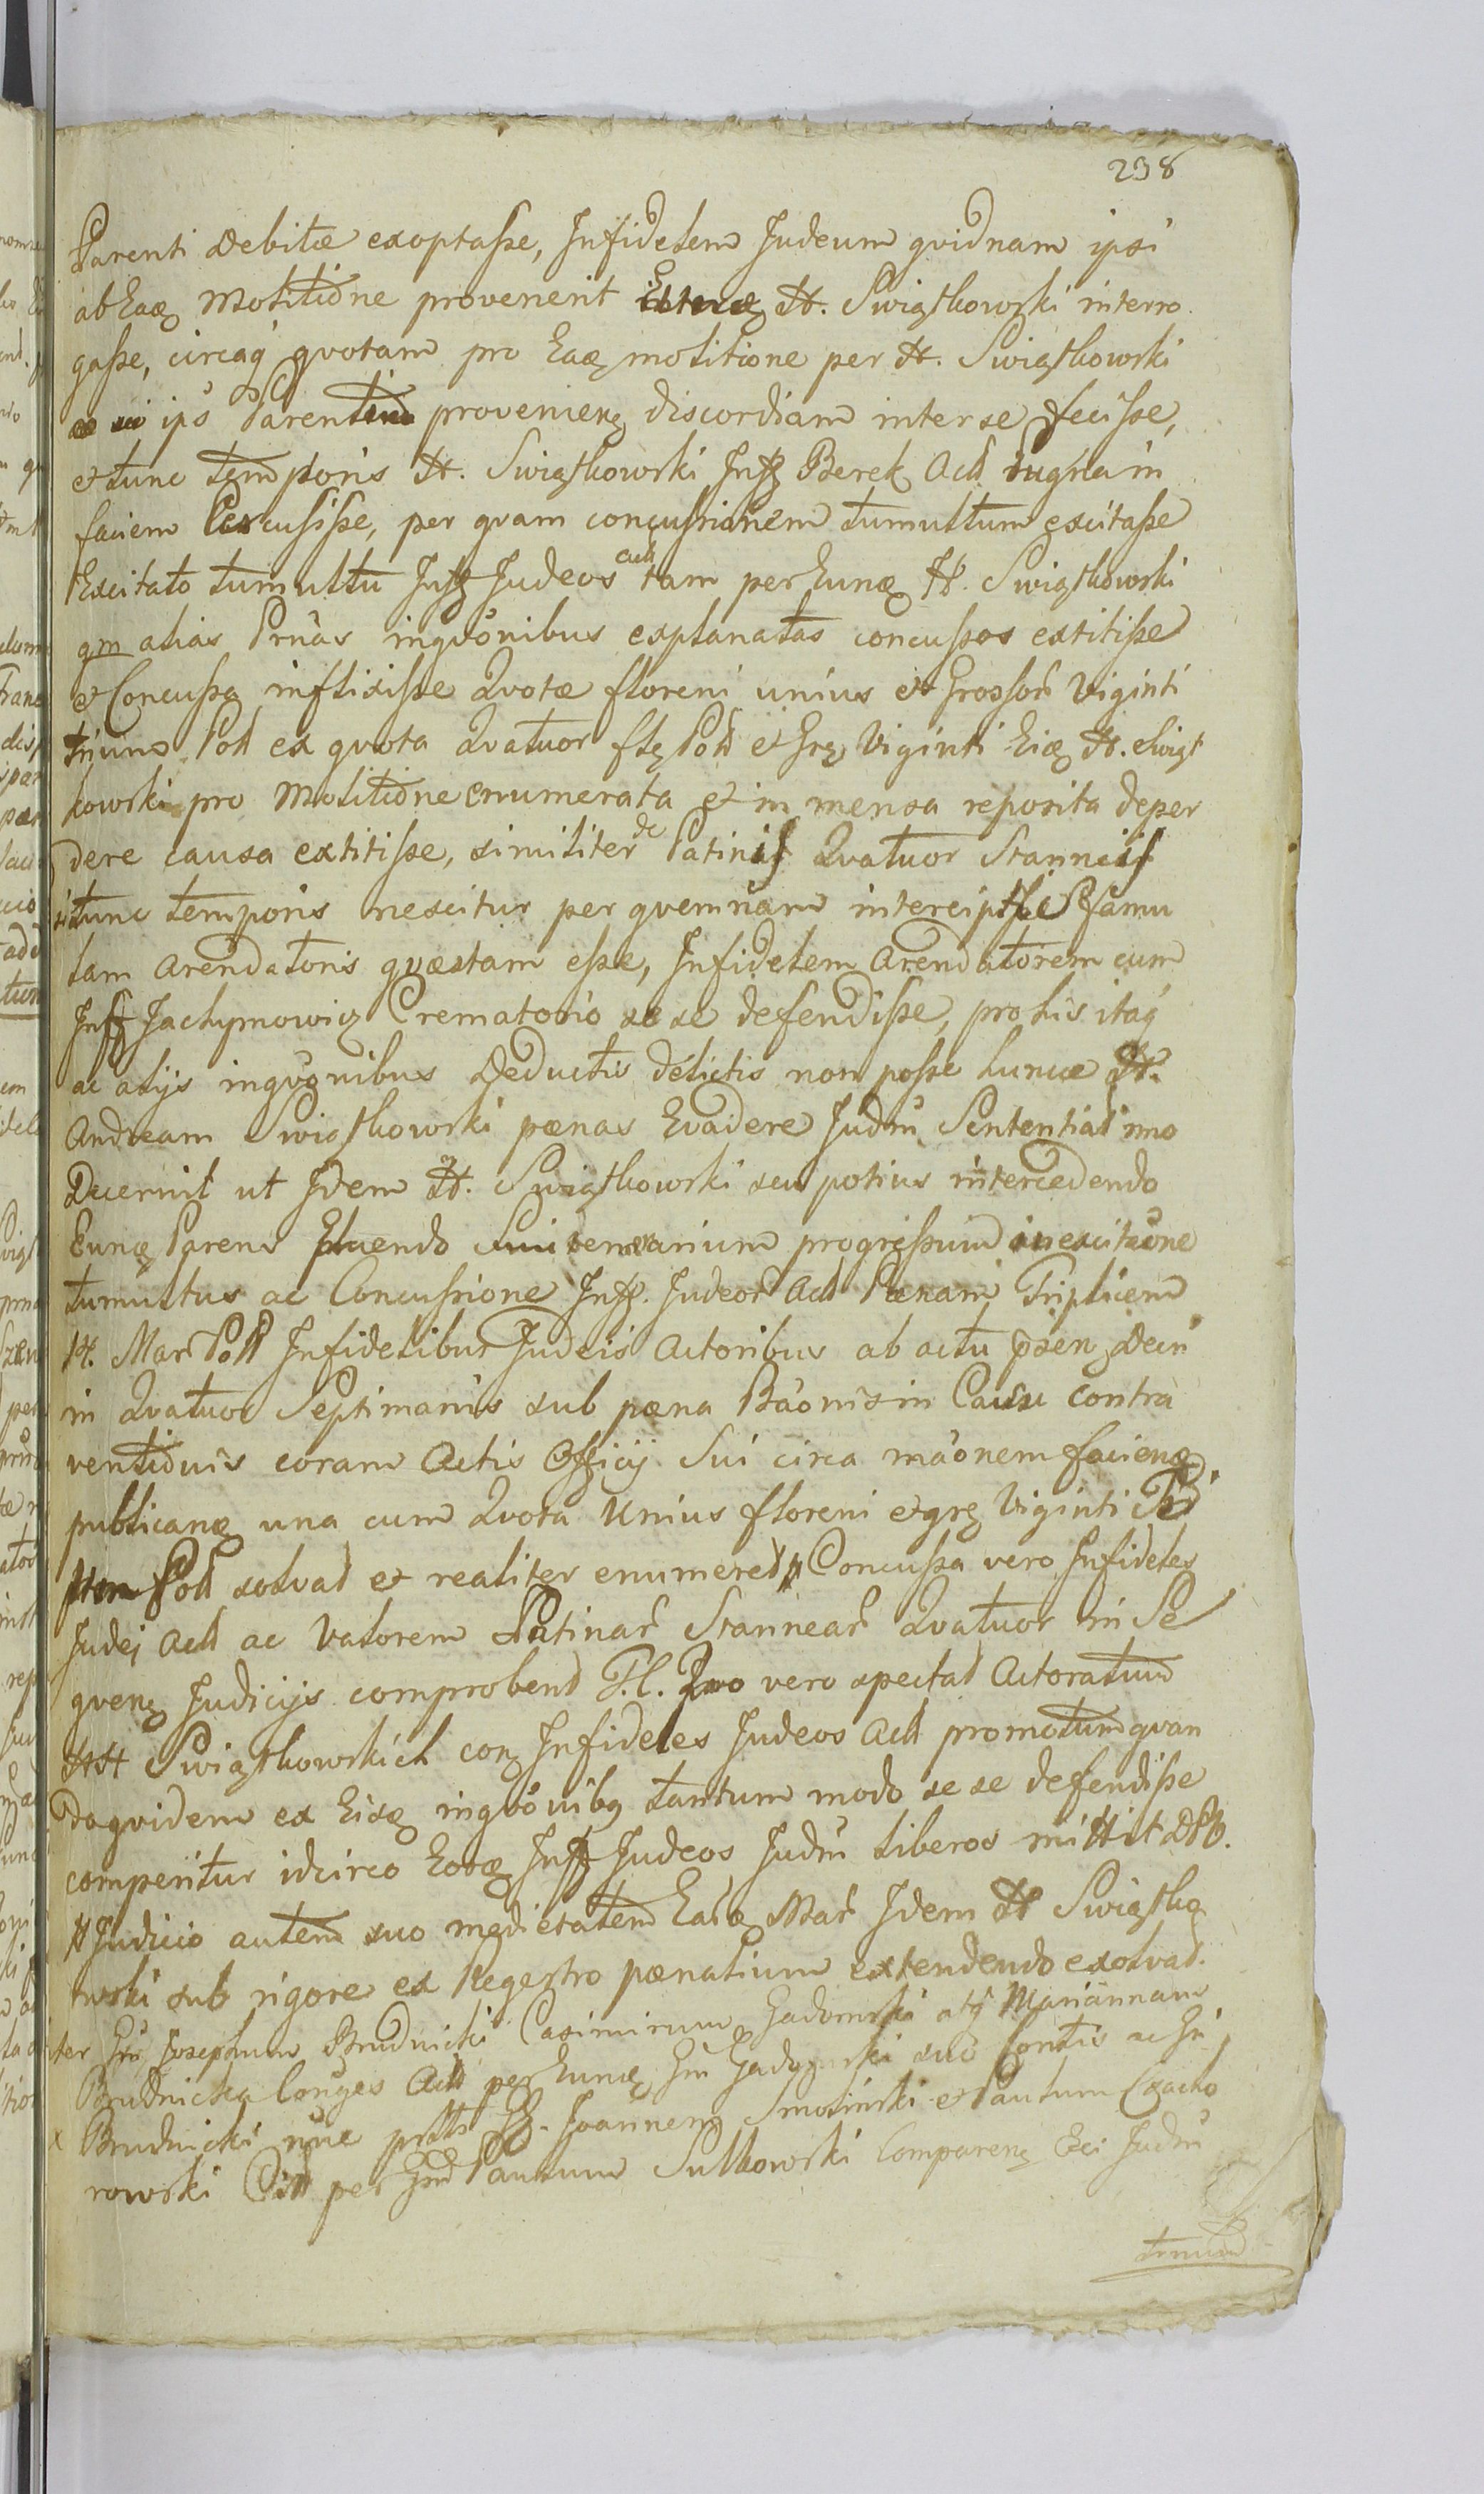 238
Parenti Debitæ exoptasse, Infidelem Judeum qvidnam ipsi
ab Eaq Molitione provenerit H. Swiątkowski interro
gasse, circaq qvotam pro Eaq molitione per H. Swiątkowski
ipś Parentem provenienq discordiam inter se fecisse,
et tunc temporis H. Swiątkowski Inff Berek Act pugna in
faciem Percusisse, per qvam concussionem tumultum excitasse
Excitato tumultu Inff Judeos act tam per Eunq H. Swiątkowski
qm alias Prnas inqvõnibus explanatas concussos extitisse
et Concussq inflixisse Qvotæ floreni unius et Grossor Viginti
trium Poll ex qvota Qvatuor flq Poll et Grq Viginti Eiq H. Swigt
kowski pro Molitione enumerata et in mensa reposita deper
dere causa extitisse, similiter de Patinis Qvatuor Stanneis
tunc temporis nescitur per qvemnam interceptis famu
lam Arendatoris qvæstam esse, Infidelem Arendatorem cum
Inff Jachymowicz Crematorio se se defendisse, pro his itaq
ac alijs inqvõnibus Deductis delictis non posse hunce H.
Andream Swiątkowski pænas Evadere Judm Sententiat imo
Decernit ut Idem H. Swiątkowski seu potius intercedendo
Eunq Parens luendo Sui temerarium progressum in excitãone
tumultus ac Concussione Inff. Judeor Act Pænam Triplicem
14. Mar Poll Infidelibus Judeis Actoribus ab actu psen Decri
in Qvatuor Septimanis sub pæna Bãonis in Casu Contra
ventionis coram Actis Officij Sui circa mãonem facienq
publicanq una cum Qvota Unius floreni et grq Viginti Tri
um Poll solvat et realiter enumeret Concussa vero Infideles
Judej Act ac Valorem Patinar Stannear Qvatuor in Se
qvenq Judicijs comprobent T.l. Qvo vero spectat Actoratum
HH Swiątkowskich con Infideles Judeos Act promotum qvan
doqvidem ex Eisq inqvõnibq tantum modo se se defendisse
comperitur idcirco Eosq Inff Judeos Judm liberos mittit
Judicio autem suo medietatem Earq Mar Idem H Swiątko
wski sub rigore ex Regestro pænalium extendendo exolvat.
ter Josephum Brudnicki Casimirum Gadomski atq Mariannam
Brudnicka Conjuges Act per Eunq Gadomski suo Contis ac
Brudnicki nunc Joannem Smolinski et Paulum Czacho
rowski Citt per Gm Paulum Sulkowski Comparenq Eci Judm